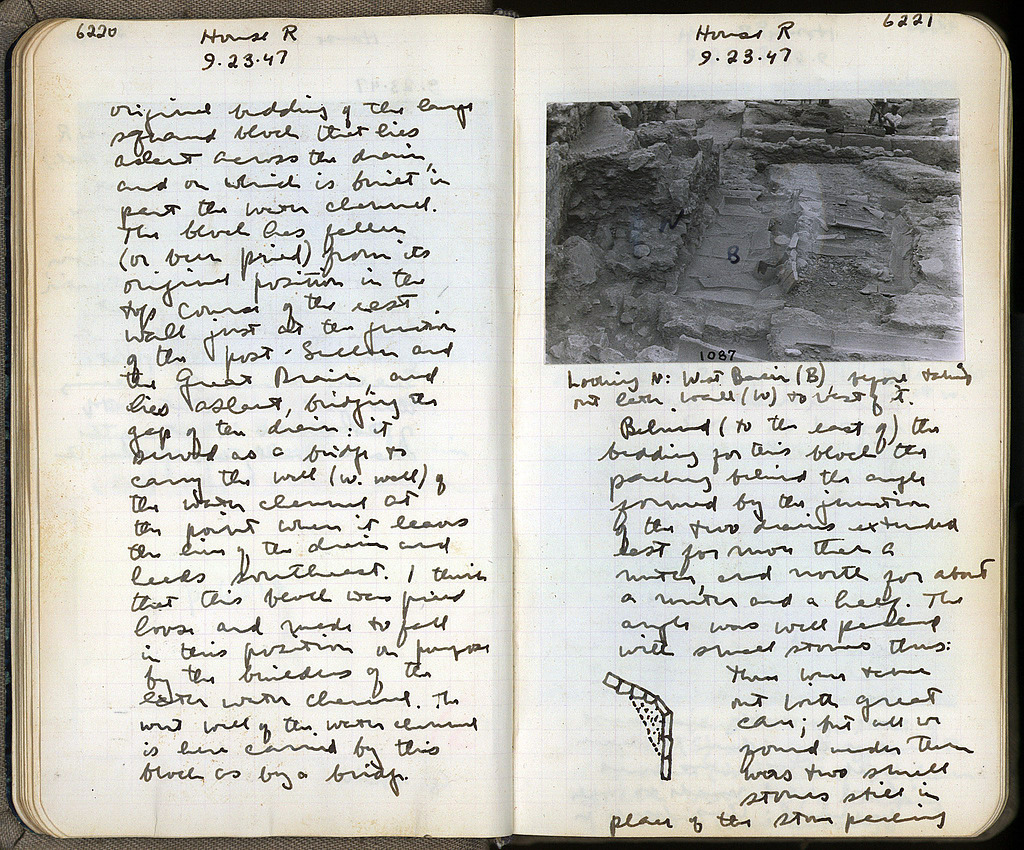 6220
House R
9.23.47
original bedding of the large
squared block that lies
aslant across the drain,
and on which is built in
part the water channel.
The block has fallen
(or been pried) from its
original position in the
top course of the east
wall just at the junction
of the post-Sullan and
the Great Drain, and
lies aslant, bridging the
gap of the drain: it
served as a bridge to
carry the wall (w. wall) of
the water channel at
the point where it leaves
the line of the drain and
leads southwest. I think
that this block was pried
loose and made to fall
in this position on purpose
by the builders of the
later water channel. The
west wall of the water channel
is here carried by this
block as by a bridge.
6221
House R
9.23.47
W
B
1087
Looking N: West Basin (B), before taking
out late wall (W) to West of it.
Behind (to the east of) the
bedding for this block the
packing behind the angle
formed by the junction
of the two drains extended
east for more than a
meter, and north for about
a meter and a half. The
angle was well packed
with small stones thus:
These were taken
out with great
care; but all we
found under them
was two small
stones still in
place of the stone packing